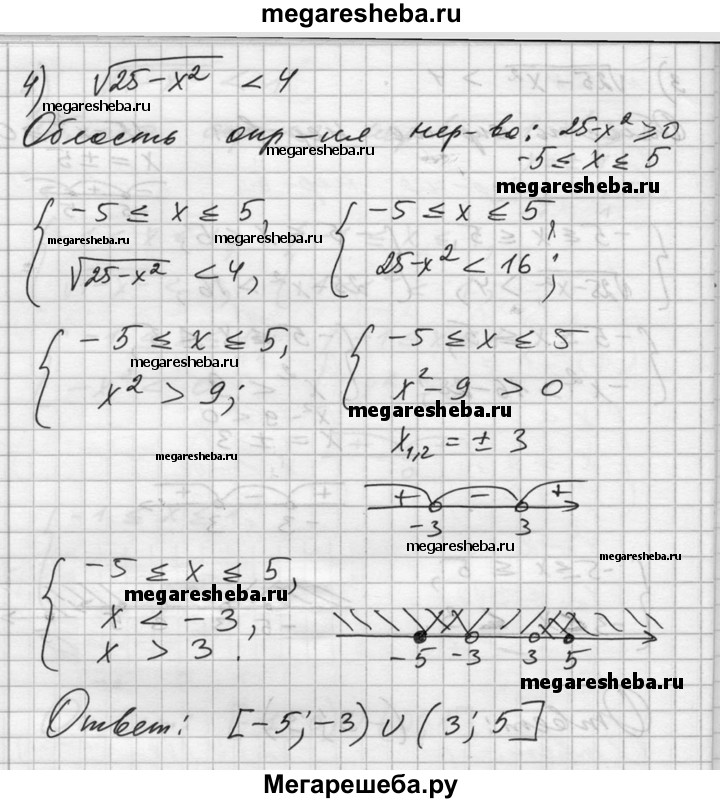 megaresheba.ru
4) √25-x² < 4
megaresheba.ru
Область опр-ия нер-ва: 25-x² ≥ 0
megaresheba.ru
-5 ≤ x ≤ 5
megaresheba.ru
{ -5 ≤ x ≤ 5, { -5 ≤ x ≤ 5,
megaresheba.ru megaresheba.ru
√25-x² < 4, 25-x² < 16;
{ -5 ≤ x ≤ 5, { -5 ≤ x ≤ 5
megaresheba.ru
x² > 9; x²-9 > 0
megaresheba.ru
x1,2 = ± 3
megaresheba.ru
+ - +
-3 3
megaresheba.ru
megaresheba.ru
{ -5 ≤ x ≤ 5,
megaresheba.ru
x < -3,
x > 3.
-5 -3 3 5
megaresheba.ru
Ответ: [-5; -3) ∪ (3; 5]
Мегарешеба.ру